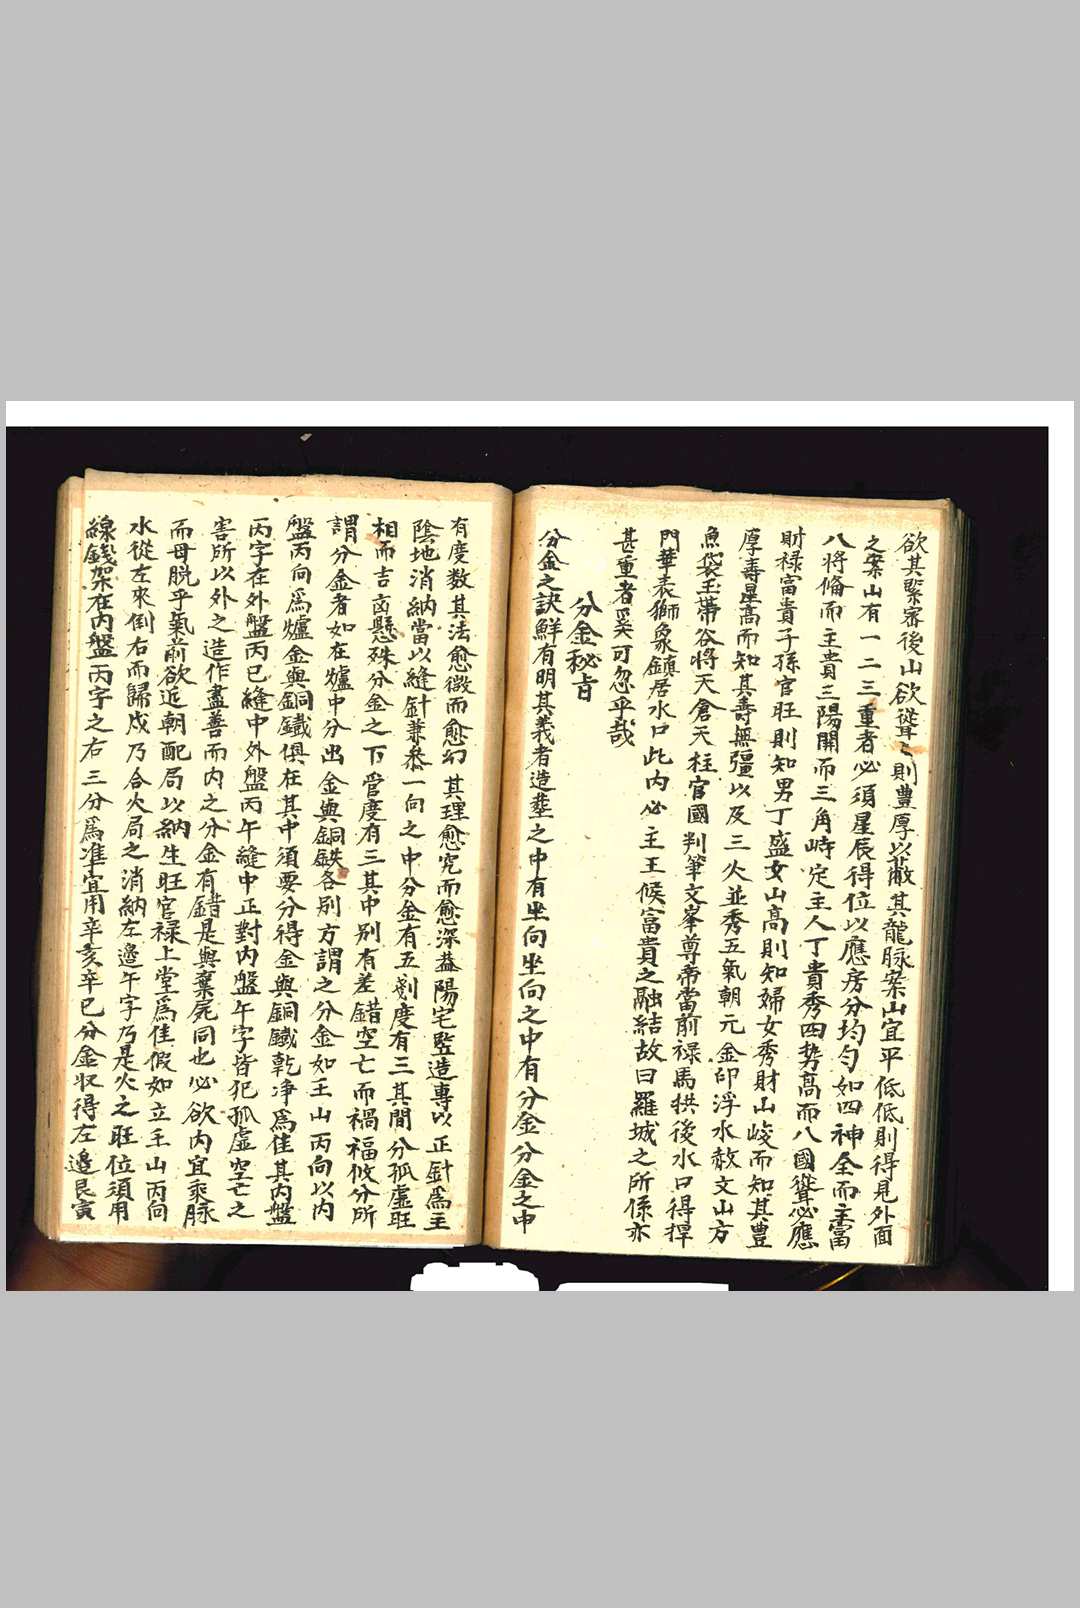 欲其緊審後山欲聳々則豊厚以蔽其龍脉案山宜平低低則得見外面
之案山有一二三重者必須星辰得位以應房分均勻如四神全而主當
八將俻而主貴三陽開而三角峙定主人丁貴秀四势高而八國聳必應
財禄富貴子孫官旺則知男丁盛女山高則知婦女秀財山峻而知其豊
厚壽星高而知其壽無疆以及三火並秀五氣朝元金印浮水赦文山方
魚袋玉帶谷將天倉天柱官國判筆文峯尊帝當前禄馬拱後水口得捍
門華表獅象鎮居水口此内必主王候富貴之融結故曰羅城之所係亦
甚重者奚可忽乎哉
分金秘旨
分金之訣鮮有明其義者造塟之中有坐向坐向之中有分金分金之中
有度数其法愈微而愈幻其理愈究而愈深葢陽宅竪造専以正針爲主
陰地消納當以縫針兼叅一向之中分金有五刻度有三其間分孤虚旺
相而吉凶懸殊分金之下管度有三其中别有差錯空亡而禍福攸分所
謂分金者如在爐中分出金與銅鉄各别方謂之分金如壬山丙向以内
盤丙向爲爐金與銅鐵俱在其中須要分得金與銅鐵乾净爲佳其内盤
丙字在外盤丙巳縫中外盤丙午縫中正對内盤午字皆犯孤虚空亡之
害所以外之造作盡善而内之分金有錯是與棄屍同也必欲内宜乘脉
而毋脱乎氣前欲近朝配局以納生旺官禄上堂爲佳假如立壬山丙向
水從左來倒右而歸戍乃合火局之消納左邉午字乃是火之旺位須用
線錢架在内盤丙字之右三分爲准宜用辛亥辛巳分金収得左邉艮寅